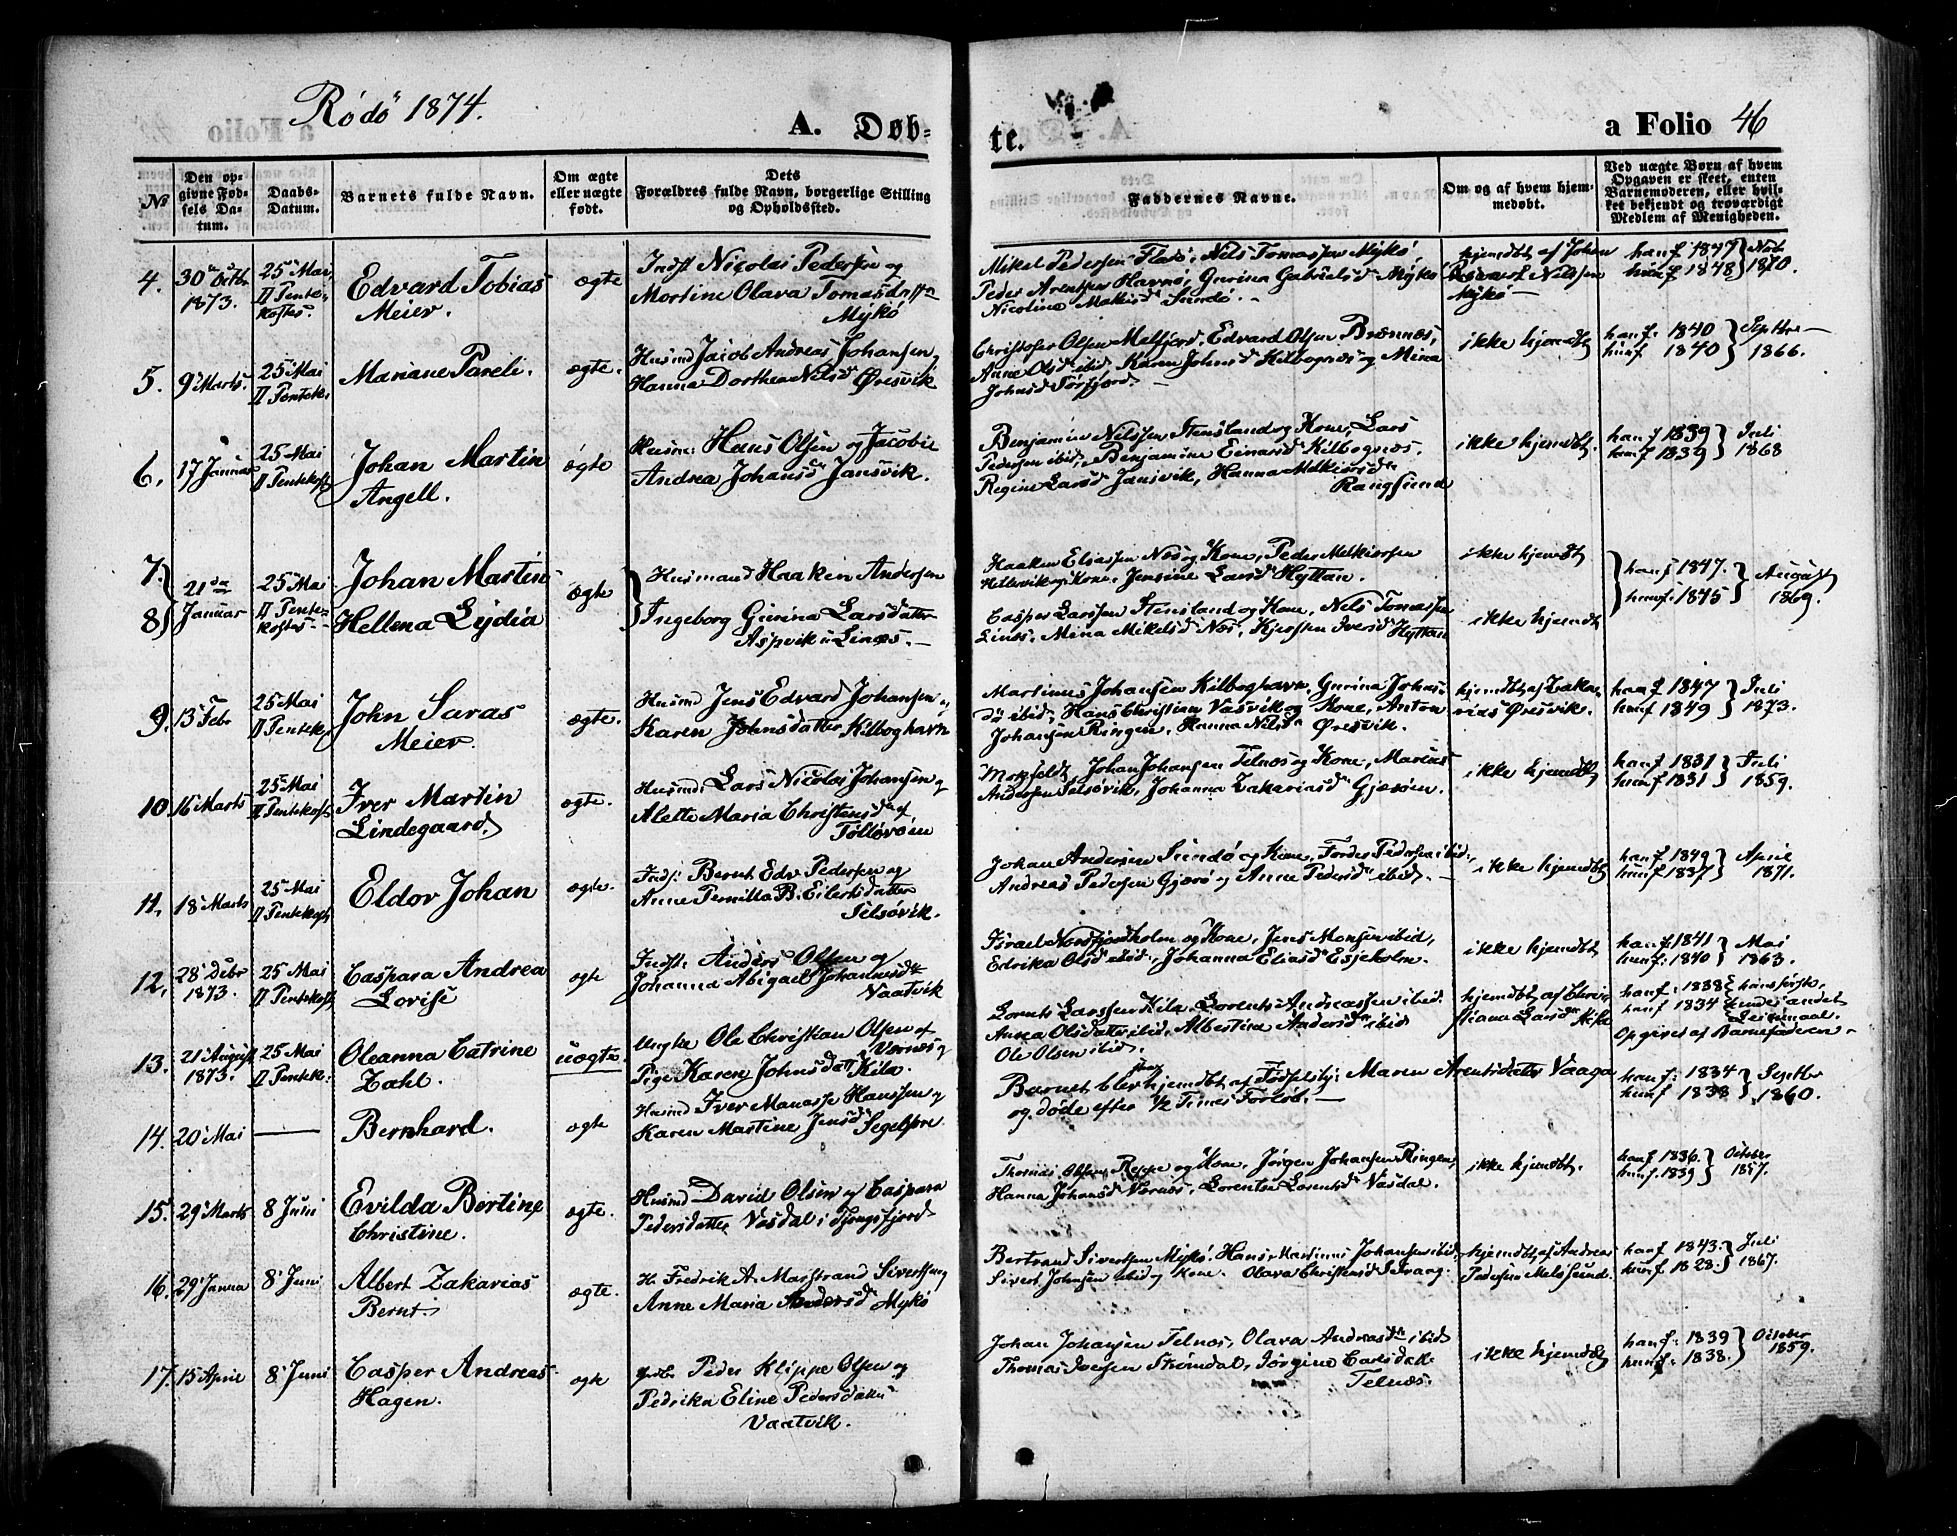 Rødø 1874.
A. Døb-
te.
a Folio 46
No
Den op-
givne Fød-
sels Da-
tum.
Daabs-
Datum.
Barnets fulde Navn.
Om ægte
eller uægte
født.
Dets
Forældres fulde Navn, borgerlige Stilling
og Opholdssted.
Faddernes Navne.
Om og af hvem hjem-
medøbt.
Ved uægte Børn af hvem
Opgaven er skeet, enten
Barnemoderen, eller hvil-
ket bekjendt og troværdigt
Medlem af Menigheden.
4.
30 Octbr
1873.
25 Mai
II Pente-
kostes.
Edvard Tobias
Meier.
ægte
Indst Nicolai Pedersen og
Mortine Olava Tomasdatter
Mykø
Mikel Pedersen Flatø, Nils Tomassen Mykø,
Peder Arentsen Havnø, Gurina Gabrielsd Mykø
Nicoline Mathisd Sundø.
hjemdbt af Johan
Nilssen
Mykø
han f 1847
hun f 1848
1870.
5.
9 Marts.
25 Mai
II Pentek.
Mariane Pareli.
ægte.
Husmd Jacob Andreas Johansen og
Hanna Dorthea Nilsd Øresvik
Christofer Olsen Melfjord, Edvard Olsen Brennæs,
Anne Olsd ibid, Karen Johnsd Kilbognæs og Mina
Johnsd Tørfjord
ikke hjemdbt
han f. 1840
hun f 1840
Septbr
1866.
6.
17 Januar
25 Mai
II Pentekost
Johan Martin
Angell.
ægte
Husm. Hans Olsen og Jacobie
Andrea Johansd Jansvik.
Benjamin Nilssen Stensland og Kone, Lars
Pedersen ibid, Benjamine Einarsd Kilbognæs,
Regine Larsd Jansvik, Hanna Melkiorsd
Rangsund
ikke hjemdbt.
han f 1839
hun f 1839
Juli
1868
7.
8
21de
Januar
25 Mai
II Pente-
kostes
Johan Martin
Hellena Lydia
ægte
Husmand Haaken Andersen
Ingeborg Gurina Larsdatter
Aspvik i Linæs.
Haaken Eliassen Næs og Kone, Peder Melkiorsen
Hellervik og Kone, Jensine Larsd Hyttan.
Casper Larssen Stensland og Kone, Nils Tomassen
Linæs, Mina Mikelsd Næs, Kjersten Iversd Hyttan
ikke hjemdbt
ikke hjemdbt
han f 1847.
hun f. 1845
August
1869.
9.
13 Febr
25 Mai
II Pentek.
John Saras
Meier.
ægte.
Husmd Jens Edvard Johansen og
Karen Johnsdatter Kilboghavn
Martinus Johansen Kilboghavn, Gurina Johns-
d ibid, Hans Christian Vasvik og Kone, Anton
Johansen Ringen, Hanna Nilsd Øresvik.
hjemdbt af Zaka-
rias Øresvik.
han f 1847
hun f 1849
Juli
1873.
10.
16 Marts
25 Mai
II Pentekost
Iver Martin
Lindegaard.
ægte.
Husmd. Lars Nicolai Johansen og
Alette Maria Christensd af
Tøllovøen
Motzfeldt Johan Johansen Telnæs og Kone, Marius
Andersen Selsøvik, Johanna Zakariasd Gjerøen.
ikke hjemdbt
han f 1831
hun f 1831
Juli
1859.
11.
18 Marts
25 Mai
II Pentekost
Eldor Johan
ægte.
Inds: Bernt Edv Pedersen og
Anne Pernilla B. Eilertsdatter
Selsøvik.
Johan Andersen Sundø og Kone, Peder Pedersen ibid,
Andreas Pedersen Gjerø og Anne Pedersd ibid.
ikke hjemdbt
han f 1849
hun f 1837
April
1871.
12.
28 Debr
1873.
25 Mai
II Pentekost
Caspara Andrea
Lovise
ægte
Indst: Anders Olsen og
Johanna Abigael Johannesd
Vaatvik
Israel Nordfjordholm og Kone, Jens Monsen ibid,
Edrika Olsd ibid, Johanna Eliasd Esjeholm.
ikke hjemdbt
han f. 1841
hun f. 1840
Mai
1863.
13.
21 August
1873.
25 Mai
II Pentek.
Oleanna Catrine
Zahl.
uægte.
Ungke Ole Christian Olsen af
Værnes og
Pige Karen Johnsdatt Kila.
Lorents Larssen Kila, Lorents Andreassen ibid,
Anna Olsdatter ibid, Albertine Andersd ibid
Ole Olsen ibid.
hjemdbt af Chris-
tiana Larsd Kila
han f. 1838
hun f 1834
hans første,
hendes andet
Leiermaal.
Opgivet af Barnefaderen
14.
20 Mai
Bernhard.
ægte
Husmd Iver Manasse Hanssen og
Karen Martine Jensd Segelfore
Barnet blev hjemdbt af Fødselshj. Maren Arentsdatter Vaaga
og døde efter 1/2 Times Forløb.
han f. 1834
hun f 1838
Septbr
1860.
15.
29 Marts
8 Juni
Evilda Bertine
Christine.
ægte.
Husmd David Olsen og Caspara
Pedersdatter Vasdal i Tjongsfjord
Thomas Olsen Reppe og Kone, Jørgen Johansen Ringen,
Hanna Johansd Værnæs, Lorentse Lorentsd Vasdal.
ikke hjemdbt.
han f. 1836.
hun f. 1839
October
1857.
16.
29 Janua
8 Juni
Albert Zakarias
Bernt.
ægte.
H. Fredrik A. Marstrand Sivertsen og
Anne Maria Andersd Mykø
Bertrand Sivertsen Mykø, Hans Martinus Johansen ibid,
Sivert Johnsen ibid og Kone. Olava Christensd Selvaag.
hjemdbt af Andreas
Pedersen Melsund.
han f 1843.
hun f. 1828.
Juli
1867.
17.
15 April
8 Juni
Casper Andreas
Hagen.
ægte
Peder Klippe Olsen og
Pedrika Eline Pedersdatter
Vaatvik.
Johan Johansen Telnæs, Olava Andreasd ibid
Thomas Strømdal, Jørgine Carlsdatt.
Telnæs.
ikke hjemdbt
han f. 1839
hun f. 1838.
October
1859.